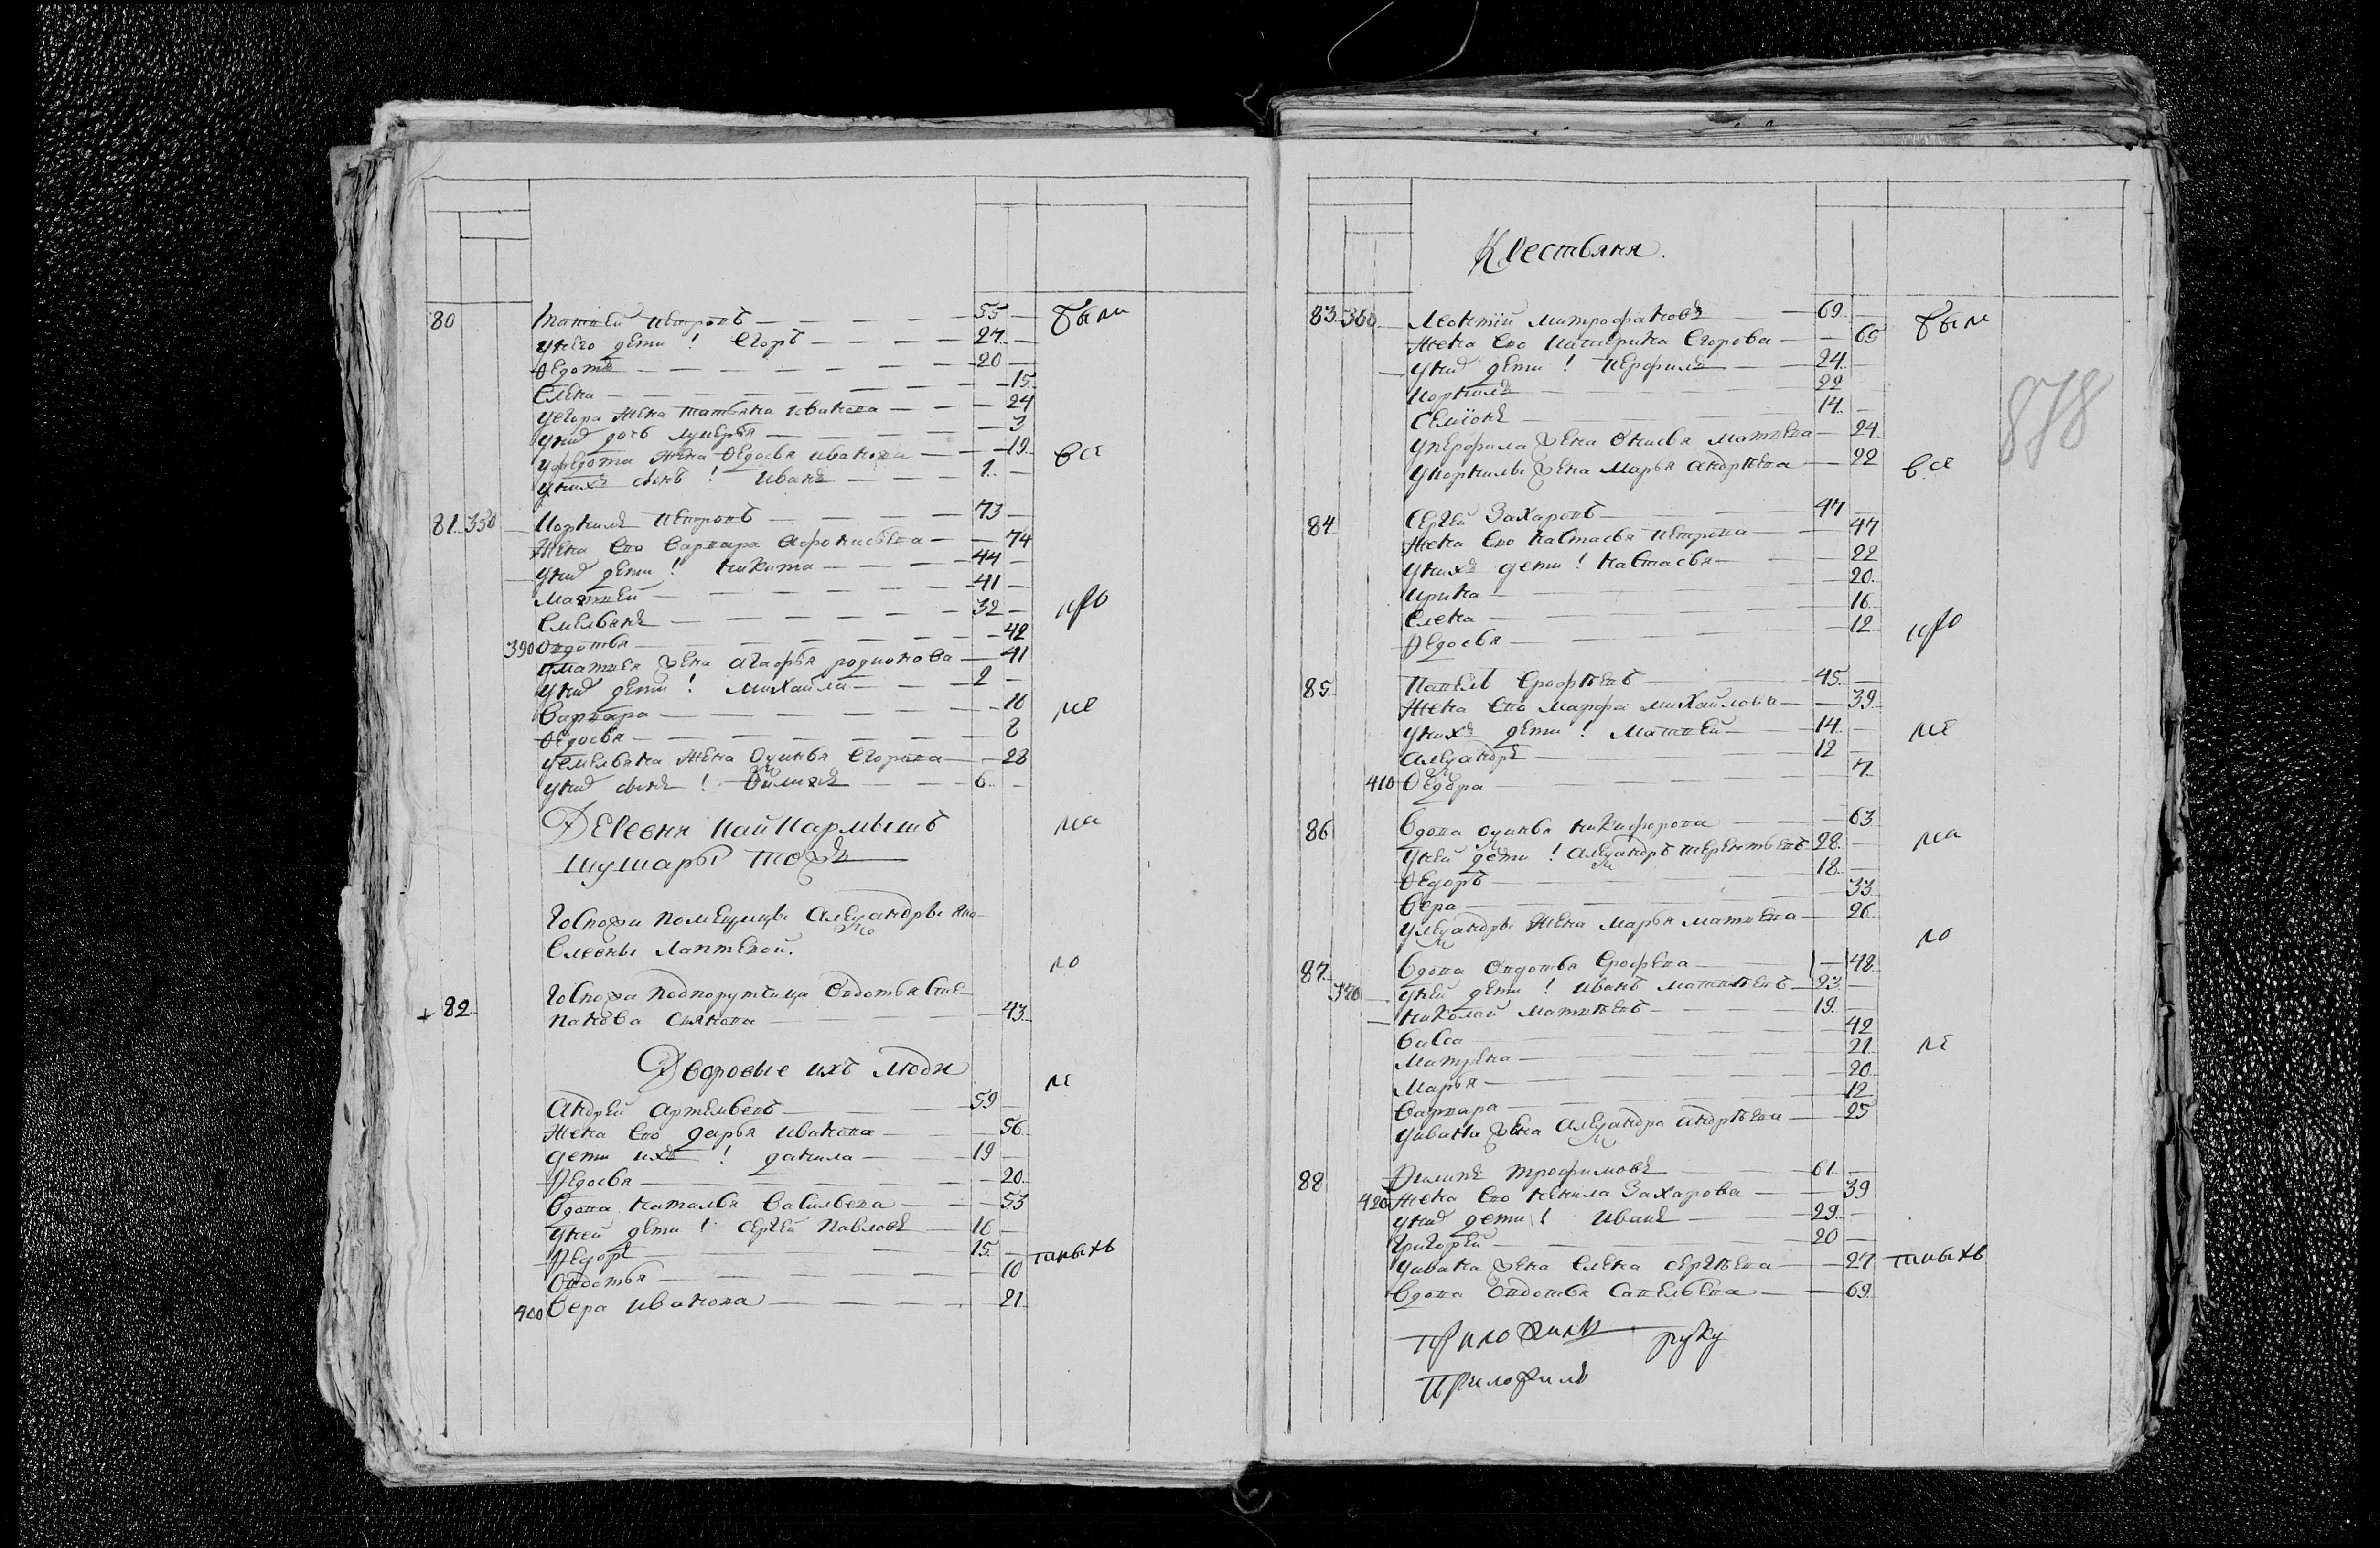 80 Матвей Петровъ — 55 — были
у него дети! Егоръ — 27 —
Ѳедотъ — 20 —
Елена — 15
у Егора жена Татьяна Иванова — 24
у них дочь Лукерья — 3
у Федота жена Ѳедосья Иванова — 19 все
у них сынъ! Иванъ — 1 —
81 350 Корнилъ Петровъ — 73 —
жена ево Варвара Афонасьева — 74
у них дети! Никита — 44 —
Матвей — 41 —
Емельянъ — 32 — про
390 Овдотья — 42
у Матвея жена Агафья Родионова — 41
у них дети! Михайла — 2 —
Варвара — 10 ме
Ѳедосья — 8
у Емельяна жена Оксинья Егорова — 28
у них сынъ! Ѳилипъ — 6 —
Деревни Кайкармышъ ма
Шушары тожъ
Госпожи помещицы Александры Яко
влевны Лаптевой.
но
Госпожа подпорутчица Овдотья Сте
+ 82 панова — 43
Дворовые ихъ люди
не
Андрей Артемьевъ — 59 —
жена ево Дарья Иванова — 56
дети ихъ! Данила — 19 —
Ѳедосья — 20
вдова Наталья Васильева — 53
у ней дети! Сергей Павловъ — 16 —
Ѳедоръ — 15 — таныхъ
Овдотья — 10
400 Вера Иванова — 21
Крестьяня.
83 360 Леонтий Митрофановъ — 69 — были
жена ево Катерина Егорова — 65
у них дети! Перфилъ — 24 —
Корнилъ — 22
878
Семионъ — 14 —
у Перфила жена Онисья Матвеева — 24
у Корнилы жена Марья Андреева — 22 все
84 Сергей Захаровъ — 47
жена ево Настасья Петрова — 47
у нихъ дети! Настасья — 22
Ирина — 20
Елена — 16
Ѳедосья — 12 про
85 Савелъ Ерофеевъ — 45 —
жена ево Марфа Михайлова — 39
у нихъ дети! Матвей — 14 — ме
Александръ — 12 —
410 Ѳедора — 7
86 вдова Оксинья Никифорова — 63
у ней дети! Александръ Терентьевъ 28 — ма
Ѳедоръ — 18 —
Вера — 33
у Александры жена Марья Матвеева — 26
но
87 вдова Овдотья Ерофеева — 48
370 у ней дети! Иванъ Матвеевъ — 23 —
Николай Матвеевъ — 19 —
Васса — 42
Матрена — 21 не
Марья — 20
Варвара — 12
у Ивана жена Александра Андреева — 25
88 Филипъ Трофимовъ — 61 —
420 жена ево Ненила Захарова — 39
у них дети! Иванъ — 29 —
Григорей — 20 —
у Ивана жена Елена Сергеева — 27 таныхъ
вдова Овдотья Савельева — 69
приложилъ руку
приложилъ